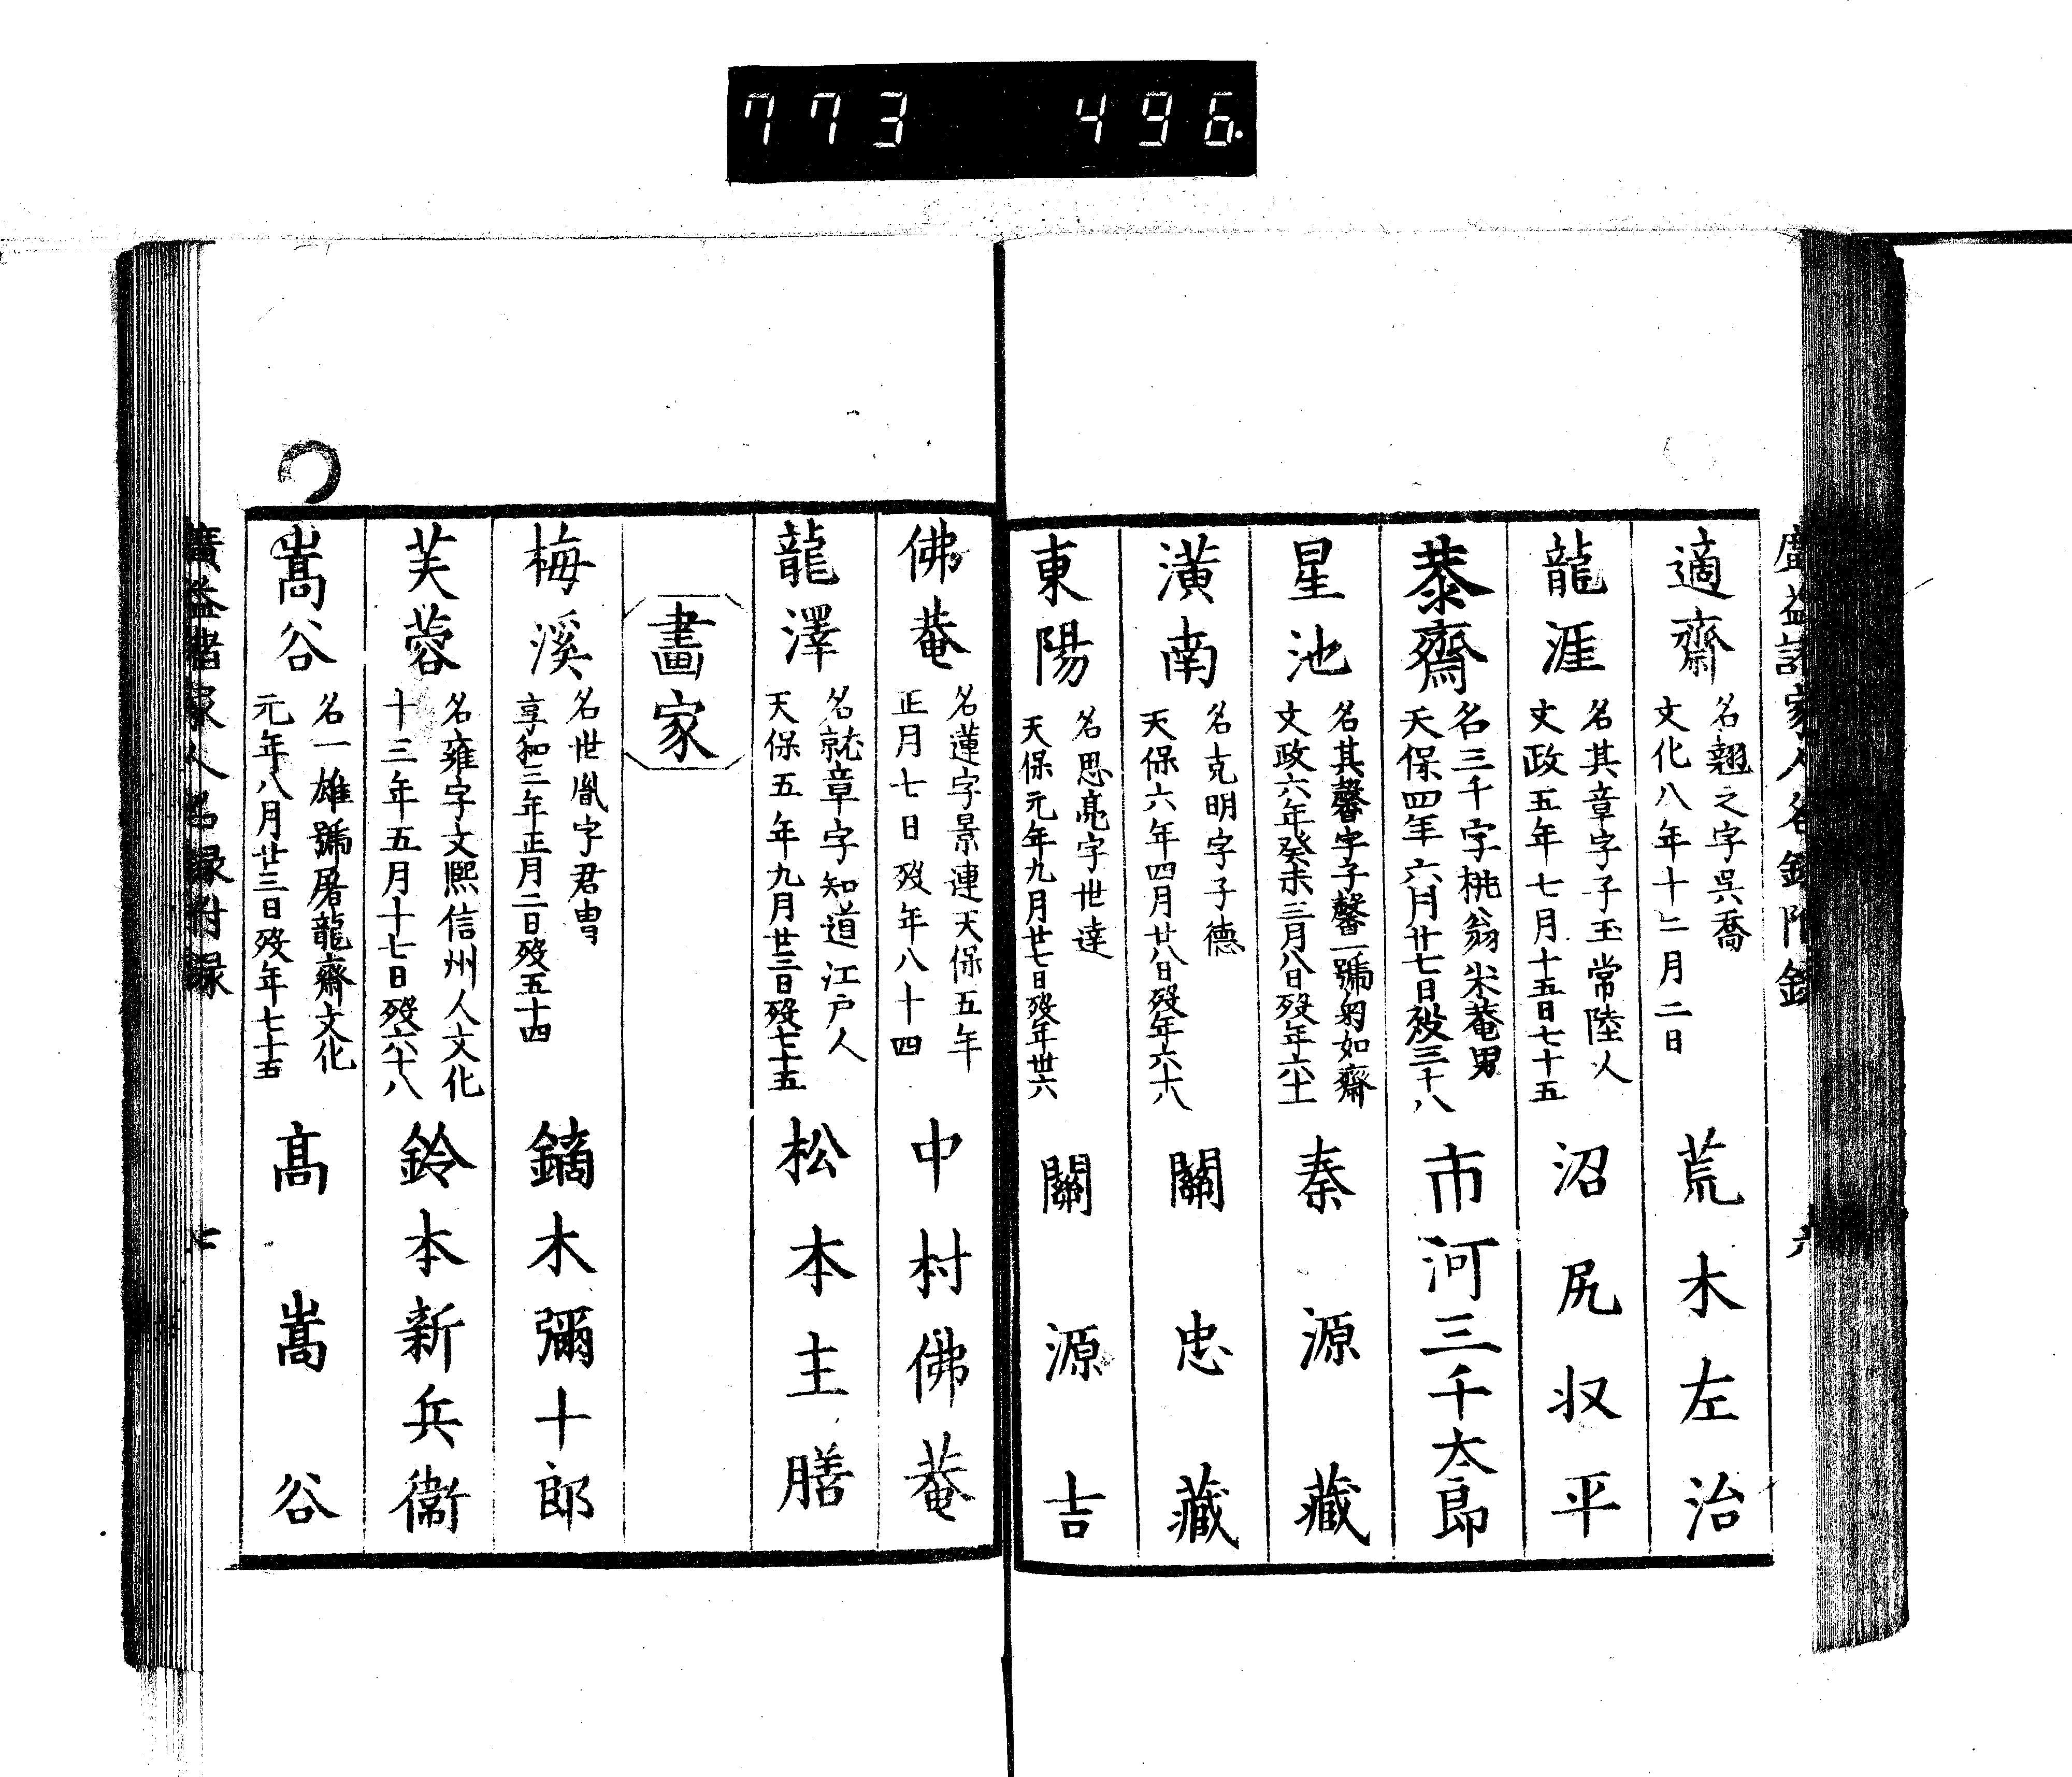 773 496
廣益諸家人名録附録
適齋
名翹之字呉喬
文化八年十二月二日
荒木左治
龍涯
名其章字子玉常陸人
文政五年七月十五日七十五
沼尻収平
恭齋
名三千字桃翁米菴男
天保四年六月廿七日歿三十八
市河三千太郎
星池
名其馨字子馨一號匊如齋
文政六年癸未三月八日歿年六十一
秦源藏
潢南
名克明字子德
天保六年四月廿八日歿年六十八
關忠藏
東陽
名思亮字世達
天保元年九月廿七日歿年卅六
關源吉
佛菴
名蓮字景連天保五年
正月七日歿年八十四
中村佛菴
龍澤
名就章字知道江戸人
天保五年九月廿三日歿七十五
松本主膳
畫家
梅溪
名世胤字君冑
享和三年正月二日歿五十四
鏑木彌十郎
芙蓉
名雍字文熙信州人文化
十三年五月十七日歿六十八
鈴木新兵衞
嵩谷
名一雄號屠龍齋文化
元年八月廿三日歿年七十五
髙嵩谷
廣益諸家人名録附録
七